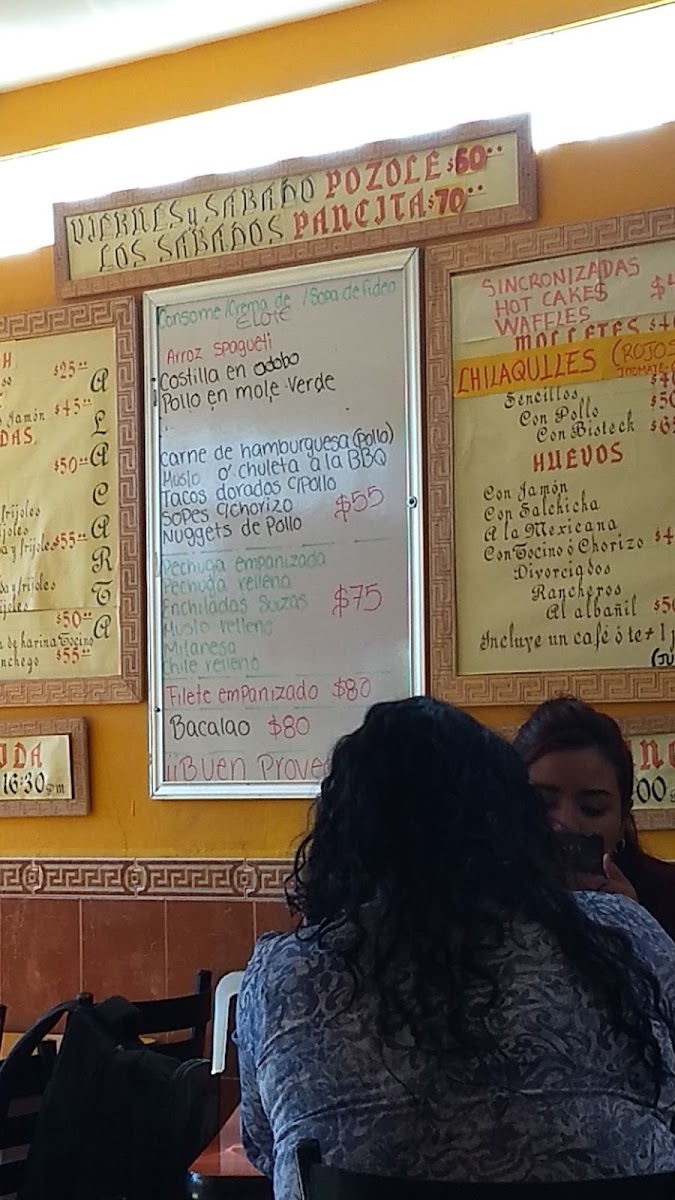 VIERNES y SABADO POZOLE $60..
LOS SABADOS PANCITA $70..
$25..
A LA CARTA
Jamón $45..
DAS
$50..
frijoles
y frijoles $55..
y frijoles
$50..
de harina Tocino
$55..
16:30 pm
Consome /Crema de ELOTE /Sopa de fideo
Arroz spagueti
Costilla en adobo
Pollo en mole verde
carne de hamburguesa (pollo)
Muslo o' chuleta a la BBQ
Tacos dorados c/Pollo
Sopes c/chorizo $55
Nuggets de Pollo
Pechuga empanizada
Pechuga rellena
Enchiladas Suizas $75
Muslo relleno
Milanesa
chile relleno
Filete empanizado $80
Bacalao $80
¡¡Buen Prove
SINCRONIZADAS
HOT CAKES
WAFFLES
MOLLETES
CHILAQUILES (ROJOS
Sencillos
Con Pollo
Con Bisteck
HUEVOS
Con Jamón
Con Salchicha
A la Mexicana
Con Tocino ó Chorizo
Divorciados
Rancheros
Al albañil
Incluye un café ó te + 1